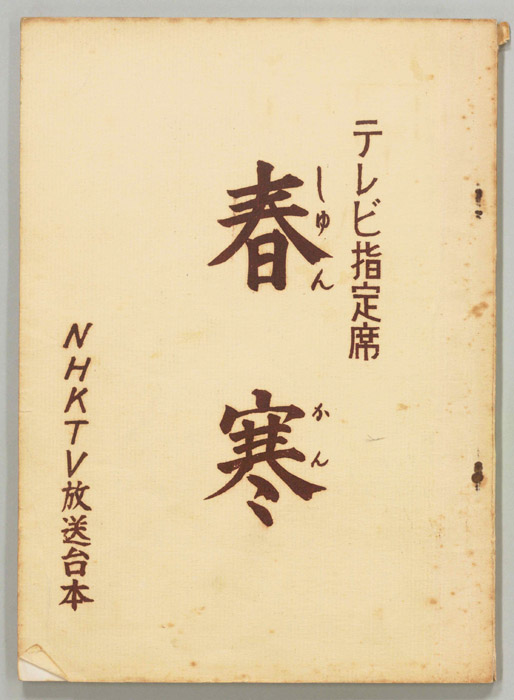 テレビ指定席
しゅん かん
春寒
NHKTV放送台本